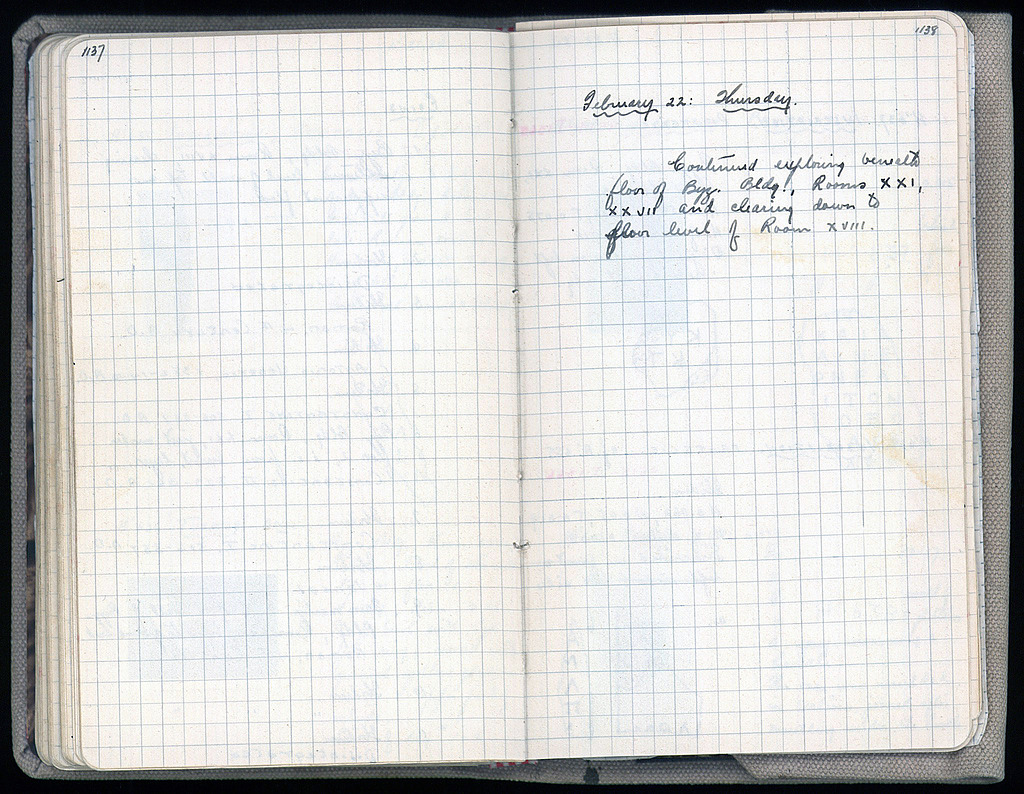 1137
1138
February 22: Thursday.
Continued exploring beneath
floor of Byz. Bldg., Rooms XXI,
XXVII and clearing down to
floor level of Room XVIII.